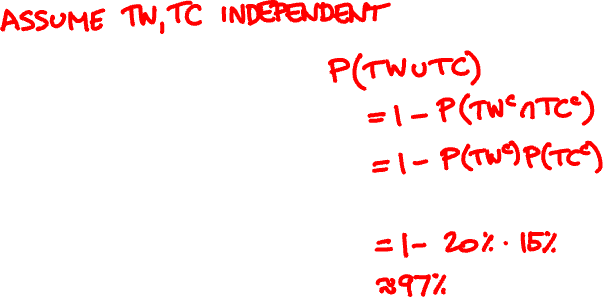 ASSUME TW, TC INDEPENDENT
P(TW∪TC)
=1-P(TWᶜ∩TCᶜ)
=1-P(TWᶜ)P(TCᶜ)
=1-20%·15%
≈97%